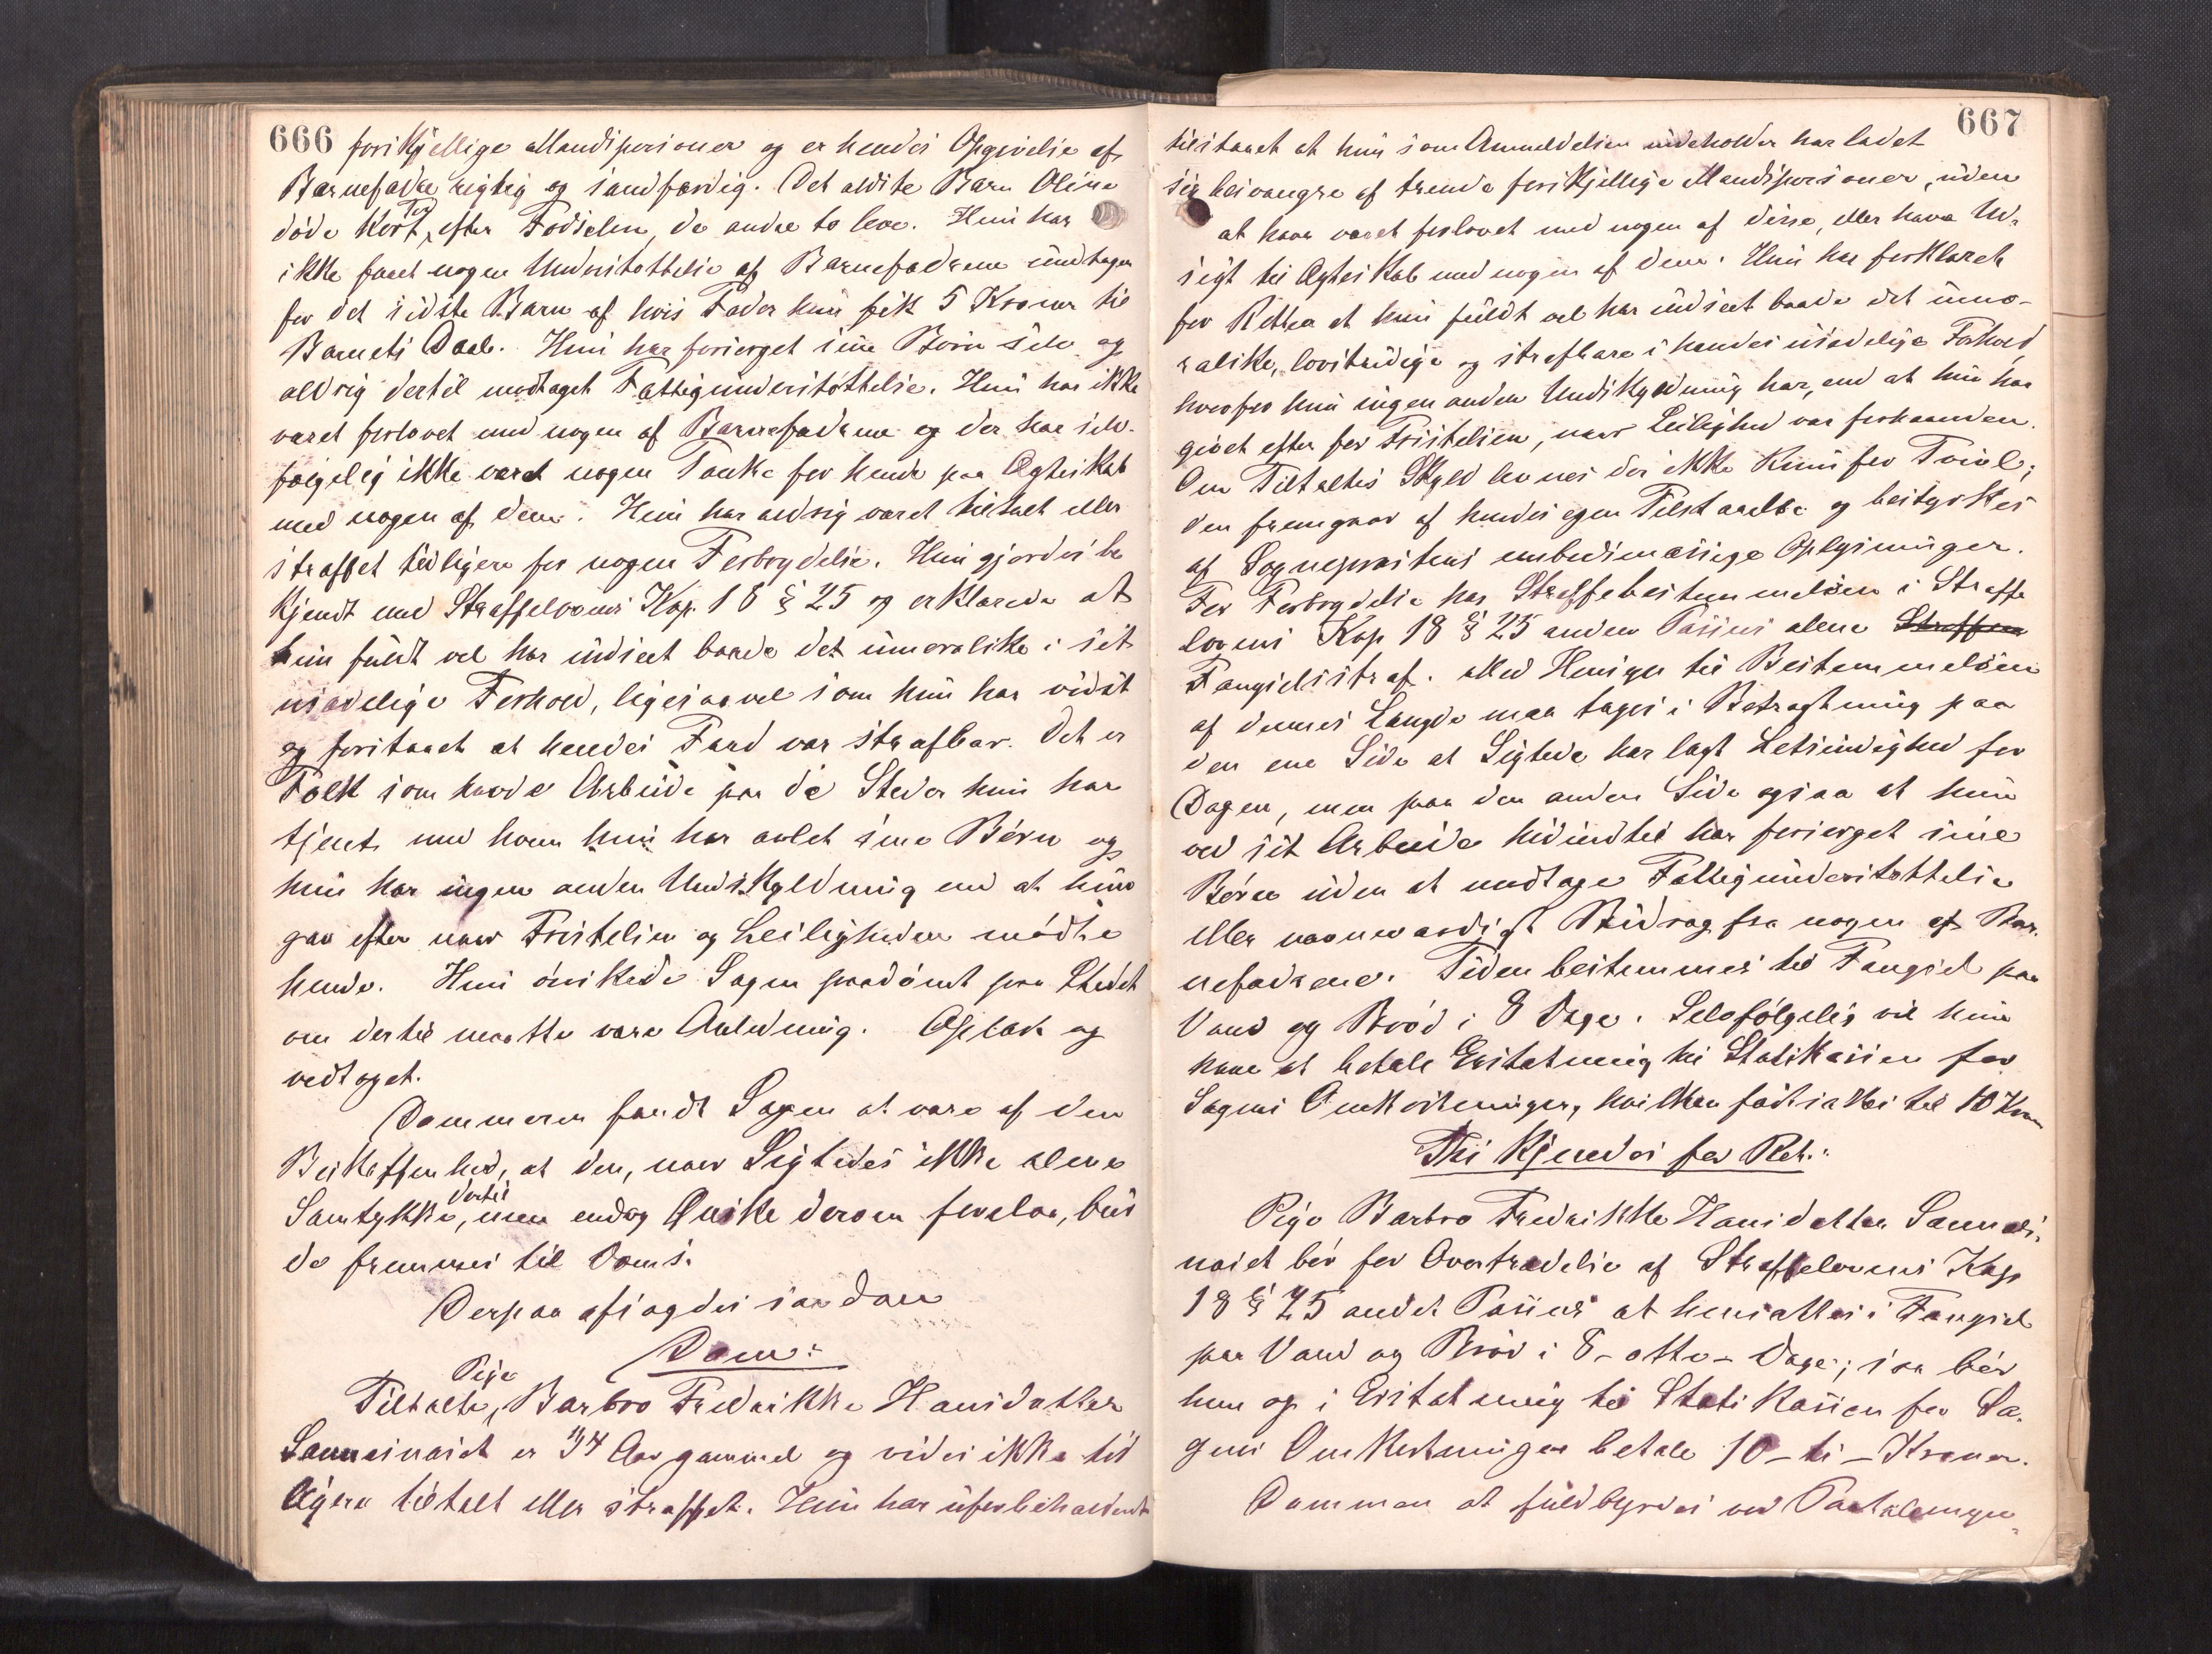 666 forskjellige Mandspersoner og er hendes Opgivelse af
Barnefædre rigtig og sandfærdig. Det ældste Barn Oline
døde kort Tid efter Fødselen, de andre to leve. Hun har
ikke faaet nogen Understøttelse af Barnefædrene undtagen
for det sidste Barn af hvis Fader hun fik 5 Kroner til
Barnets Daab. Hun har forsørget sine Børn selv og
aldrig dertil modtaget Fattigunderstøttelse. Hun har ikke
været forlovet med nogen af Barnefædrene og der har selv-
følgelig ikke været nogen Tanke for hende paa Ægteskab
med nogen af dem. Hun har aldrig været tiltalt eller
straffet tidligere for nogen Forbrydelse. Hun gjordes be
kjendt med Straffelovens Kap. 18 § 25 og erklærede at
hun fuldt vel har indseet baade det umoralske i sit
usædelige Forhold, ligesaavel som hun har vidst
og forstaaet at hendes Færd var strafbar. Det er
Folk som havde Arbeide paa de Steder hun har
tjent med hvem hun har avlet sine Børn og
hun har ingen anden Undskyldning end at hun
gav efter naar Fristelsen og Leiligheden mødte
hende. Hun ønskede Sagen paadømt paa Stedet
om dertil maatte være Anledning. Oplæst og
vedtaget.
Dommeren fandt Sagen at være af den
Beskaffenhed, at den, naar Sigtedes ikke alene
Samtykke dertil, men endog Ønske derom forelaa, bør
de fremmes til Doms.
Derpaa afsagdes saadan
Dom:
Tiltalte, Pige Barbro Fredrikke Hansdatter
Sannesnæset er 34 Aar gammel og vides ikke tid
ligere tiltalt eller straffet. Hun har uforbeholdent
667
tilstaaet at hun som Anmeldelsen indeholder har ladet
sig besvangre af trende forskjellige Mandspersoner, uden
at have været forlovet med nogen af disse, eller have Ud-
sigt til Ægteskab med nogen af dem. Hun har forklaret
for Retten at hun fuldt vel har indseet baade det umo-
ralske, lovstridige og strafbare i hendes usædelige Forhold,
hvorfor hun ingen anden Undskyldning har, end at hun har
givet efter for Fristelsen, naar Leilighed var forhaanden.
Om Tiltaltes Skyld levnes der ikke Rum for Tvivl;
den fremgaar af hendes egen Tilstaaelse og bestyrkes
af Sogneprestens embedsmæssige Oplysninger.
For Forbrydelse har Straffebestemmelsen i Straffe
lovens Kap 18 § 25 anden Passus alene Straffen
Fængselsstraf. Med Hensyn til Bestemmelsen
af dennes Længde maa tages i Betragtning paa
den ene Side at Sigtede har lagt Letsindighed for
Dagen, men paa den anden Side ogsaa at hun
ved sit Arbeide hidindtil har forsørget sine
Børn uden at modtage Fattigunderstøttelse
eller nævneværdigt Bidrag fra nogen af Bar-
nefædrene. Tiden bestemmes til Fængsel paa
Vand og Brød i 8 Dage. Selvfølgelig vil hun
have at betale Erstatning til Statskassen for
Sagens Omkostninger, hvilken fastsættes til 10 Kroner
Thi kjendes for Ret:
Pige Barbro Fredrikke Hansdatter Sannes-
næset bør for Overtrædelse af Straffelovens Kap
18 § 25 andet Passus at hensættes i Fængsel
paa Vand og Brød i 8 - otte - Dage; saa bør
hun og i Erstatning til Statskassen for Sa-
gens Omkostninger betale 10 - ti - Kroner.
Dommen at fuldbyrdes ved Paatalemyn-